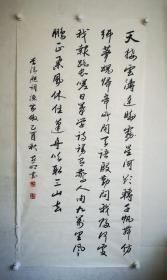 天接雲濤連曉霧星河欲轉千帆舞仿
佛夢魂歸帝所聞天語殷勤問我歸何處
我報路長嗟日暮學詩謾有驚人句九萬里風
鵬正舉風休住蓬舟吹取三山去
李清照詞漁家傲乙酉秋